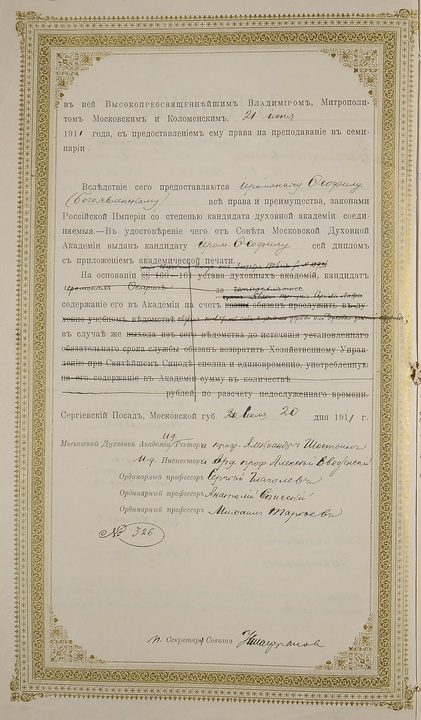 въ ней Высокопреосвященнѣйшимъ Владиміромъ, Митрополи-
томъ Московскимъ и Коломенскимъ, 21 июня
1911 года, съ предоставленіемъ ему права на преподаваніе въ семи-
наріи.
Вслѣдствіе сего предоставляются іеромонаху Ѳеофилу
(Богоявленскому) всѣ права и преимущества, законами
Россійской Имперіи со степенью кандидата духовной академіи соеди-
няемыя.—Въ удостовѣреніе чего отъ Совѣта Московской Духовной
Академіи выданъ кандидату іером. Ѳеофилу сей дипломъ
съ приложеніемъ академической печати.
На основаніи §§ 160—161 устава духовныхъ академій, кандидатъ
за
содержаніе его въ Академіи на счетъ казны обязанъ прослужить въ ду-
ховно-учебномъ вѣдомствѣ
въ случаѣ же выхода изъ сего вѣдомства до истеченія установленнаго
обязательнаго срока службы обязанъ возвратить Хозяйственному Управ-
ленію при Святѣйшемъ Синодѣ сполна и единовременно, употребленную
на его содержаніе въ Академіи сумму въ количествѣ
рублей, по разсчету недослуженнаго времени.
Сергіевскій Посадъ, Московской губ. 20 дня 1911 г.
И.д.
Московской Духовной Академіи Ректора проф. Александръ Шостьинъ
И.д. Инспектора Орд. проф. Алексѣй Введенскій
Ординарный профессоръ Сергѣй Глаголевъ
Ординарный профессоръ Анатолій Спасскій
Ординарный профессоръ Михаилъ Тарѣевъ
№ 326
И. Секретарь Совѣта